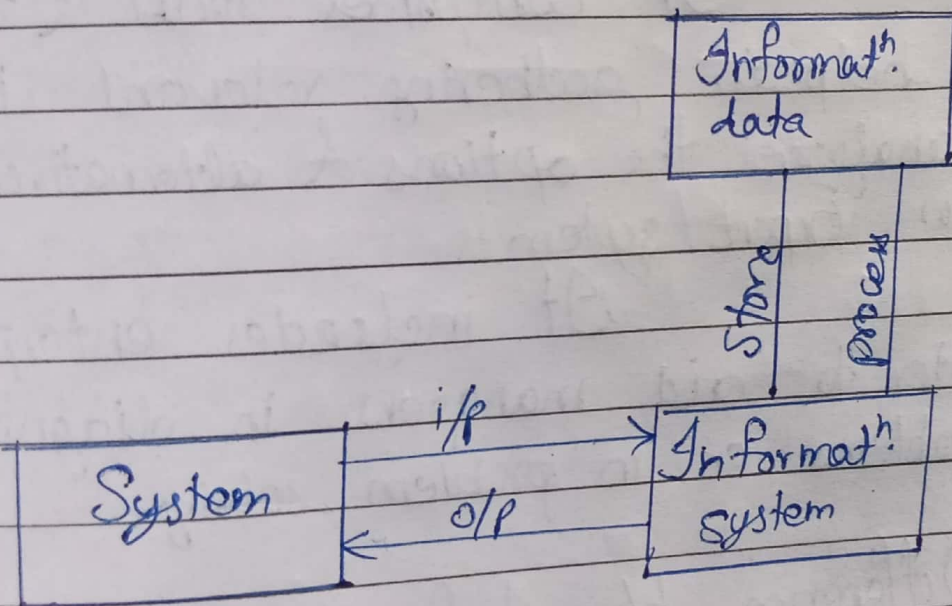 Informatⁿ.
data
Store
process
i/p
System
o/p
Informatⁿ.
system